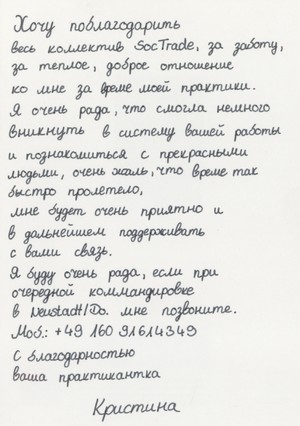 Хочу поблагодарить
весь коллектив SocTrade, за заботу,
за теплое, доброе отношение
ко мне за време моей практики.
Я очень рада, что смогла немного
вникнуть в систему вашей работы
и познакомиться с прекрасными
людьми, очень жаль, что време так
быстро пролетело,
мне будет очень приятно и
в дальнейшем поддерживать
с вами связь.
Я буду очень рада, если при
очередной коммандировке
в Neustadt/Do. мне позвоните.
Моб.: +49 160 91614349
С благодарностью
ваша практикантка
Кристина